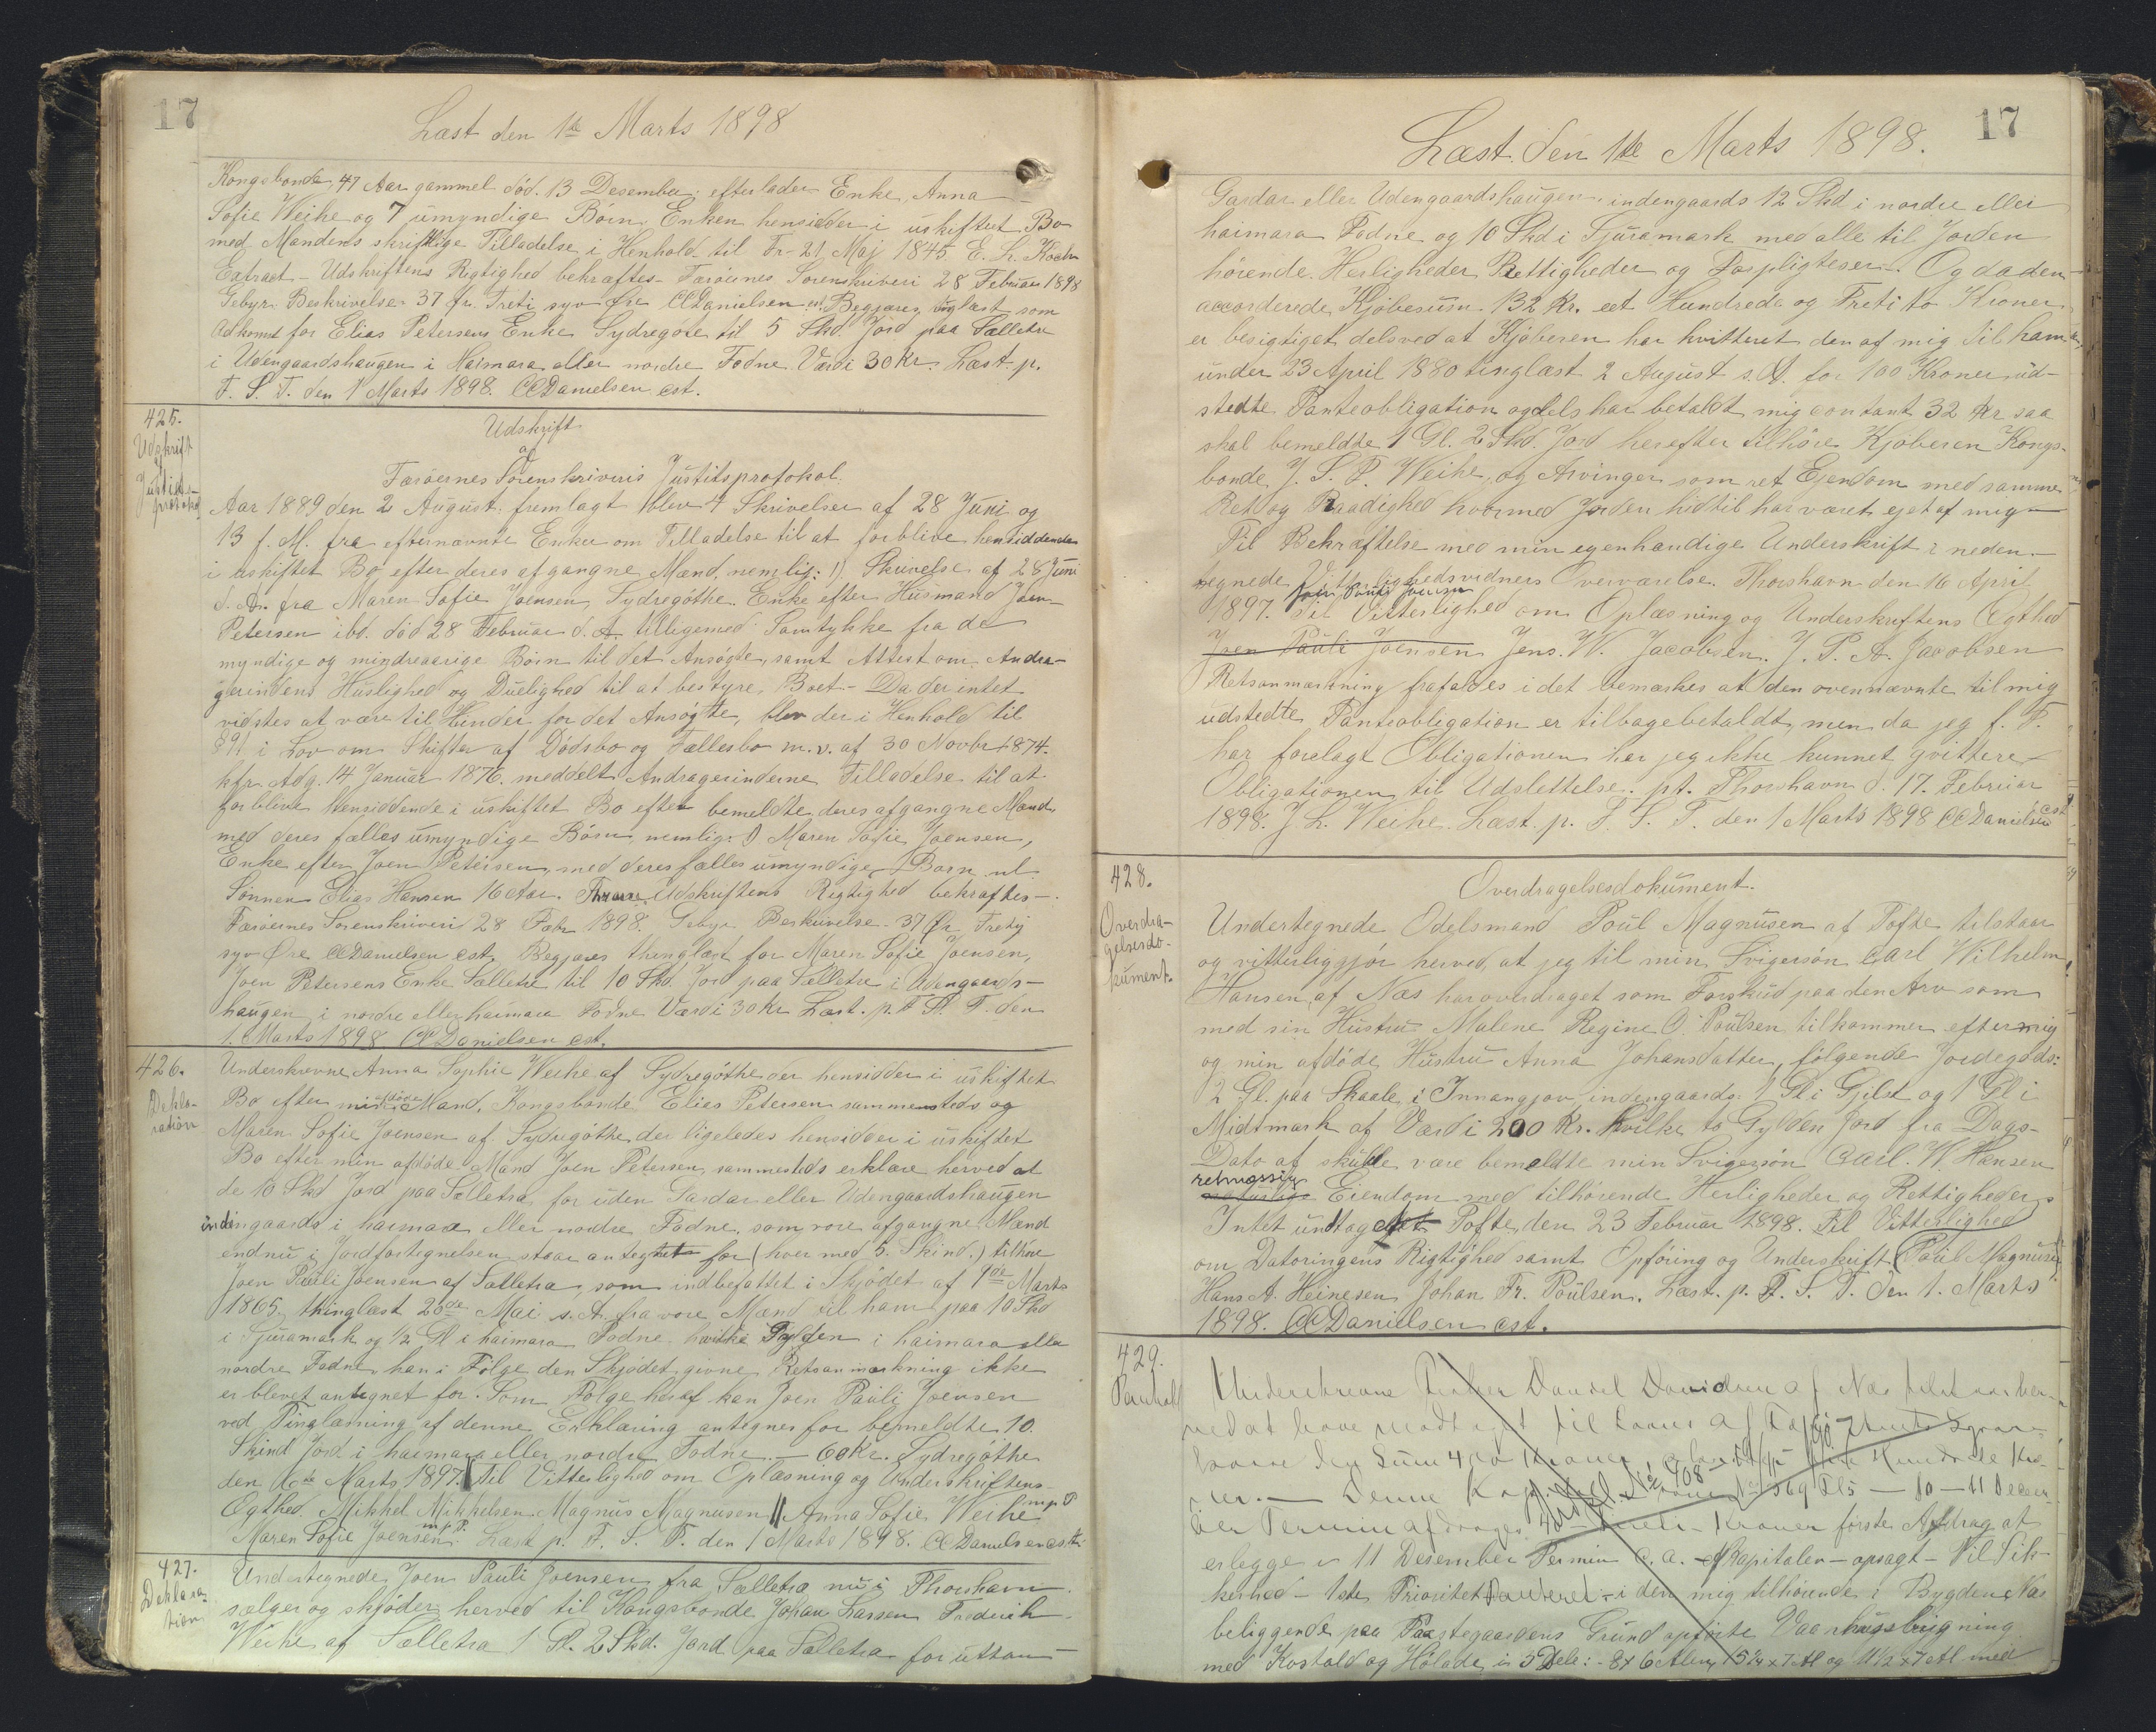 17
Læst den 1ste Marts 1898
Kongsbonde, 47 Aar gammel død. 13 Desember efterlader Enke, Anna
Sofie Weihe og 7 umyndige Börn. Enken hensidder i uskiftet Bo
med Mandens skriftlige Tilladelse i Henhold til Fr. 21 Maj 1845. E. Hr. Koch
Extract - Udskriftens Rigtighed bekræftes - Færöernes Sorenskriveri 28 Februar 1898
Gebyr. Beskrivelse 37 Ør. Treti syv Øre CCDanielsen cst. Begjæres tinglæst som
Adkomst for Elias Petersens Enke Sydregöte til 5 Skd Jord paa Sælletre
i Udengaardshaugen i Haimara eller nordre Todne Værdi 30 Kr. Læst p.
F. S. T. den 1 Marts 1898. CCDanielsen cst.
425.
Udskrift
af
Justits-
protokol
Udskrift
af
Færöernes Sorenskriveris Justitsprotokol.
Aar 1889 den 2 August: fremlagt blev 4 Skrivelser af 28 Juni og
13 f. M. fra efternævnte Enker om Tilladelse til at forblive hensiddende
i uskiftet Bo efter deres afgangne Mænd, nemlig: 1) Skrivelse af 28 Juni
d. A. fra Maren Sofie Joensen, Sydregöthe. Enke efter Husmand Joen
Petersen ibd. död 28 Februar d. A. tilligemed Samtykke fra de
myndige og mindreaarige Börn til det Ansögte, samt Attest om Andra-
gerindens Huslighed og Duelighed til at bestyre Boet - Da der intet
vidstes at være til Hinder for det Ansøgte, blev der i Henhold til
§ 91 i Lov om Skifte af Dödsbo og Fællesbo m. v. af 30 Novbr 1874.
kfr. Adg. 14 Januar 1876. meddelt Andragerinderne Tilladelse til at
forblive hensiddende i uskiftet Bo efter bemeldte deres afgangne Mænd
med deres fælles umyndige Börn, nemlig: 1) Maren Sofie Joensen,
Enke efter Joen Petersen, med deres fælles umyndige Barn nl.
Sönnen Elias Hansen 16 Aar. Udskriftens Rigtighed bekræftes -
Færöernes Sorenskriveri 28 Febr. 1898. Gebyr Beskrivelse 37 Ør Treti
syv Øre CCDanielsen cst. Begjæres thinglæst for Maren Sofie Joensen,
Joen Petersens Enke Sælletre til 10 Skd. Jord paa Sælletre i Udengaards-
haugen, i nordre eller haimara Todne Værdi 30 Kr Læst. p. F. S. T. den
1. Marts 1898 CCDanielsen cst.
426.
Dekla-
ration
Underskrevne Anna Sophie Weihe af Sydregöthe der hensidder i uskiftet
Bo efter min afdöde Mand, Kongsbonde Elias Petersen sammesteds og
Maren Sofie Joensen af Sydregöthe, der ligeledes hensidder i uskiftet
Bo efter min afdöde Mand Joen Petersen, sammesteds erklære herved at
de 10 Skd Jord paa Sælletra, for uden Gardar eller Udengaardshaugen
indengaards i haimara eller nordre Todne, som vore afgangne Mænd
endnu i Jordfortegnelsen staar antegnet for (hver med 5. Skind.) tilhöre
Joen Pauli Joensen af Sælletra, som indbefattet i Skjödet af 1ste Marts
1865, thinglæst 20de Mai s. A. fra vore Mænd til ham paa 10 Skd
i Tjuramark og 1/2 Gl i haimara Todne, hvilke Gylden i haimara eller
nordre Todne, han i Fölge den Skjödet givne Retsanmærkning ikke
er blevet antegnet for. Som Fölge heraf kan Joen Pauli Joensen
ved Tinglæsning af denne Erklæring antegnes for bemeldte 10
Skind Jord i haimara eller nordre Todne. — 60 Kr. Sydregöthe
den Marts 1897. Til Vitterlighed om Oplæsning og Underskriftens
Ægthed. Mikkel Mikkelsen. Magnus Magnusen || Anna Sofie Weihe m.p.P
Maren Sofie Joensen m.p.P. Læst p. F. S. T. den 1 Marts 1898. CCDanielsen cst.
427.
Deklara-
tion
Undertegnede Joen Pauli Joensen fra Sælletra nu i Thorshavn
sælger og skjöder herved til Kongsbonde Johan Lassen Frederik
Weihe af Sælletra 1 Gl. 2 Skd. Jord paa Sælletra for uttan
17
Læst. den 1ste Marts 1898.
Gardar eller Udengaardshaugen, indengaards 12 Skd i nordre eller
haimara Todne og 10 Skd i Tjuramark med alle til Jorden
hörende Herligheder Rettigheder og Forpligtelser. Og da den
accorderede Kjöbesum 132 Kr. eet Hundrede og Treti to Kroner
er besigtiget dels ved at Kjöberen har kvitteret den af mig til ham
under 23 April 1880 tinglæst 2 August s. A. for 100 Kroner ud-
stedte Panteobligation og dels har betalt mig contant 32 Kr saa
skal bemeldte 1 Gl. 2 Skd. Jord herefter tilhöre Kjöberen Kongs-
bonde J. L. F. Weihe, og Arvinger som ret Ejendom med samme
Ret og Raadighed hvormed Jorden hidtil har været ejet af mig
Til Bekræftelse med min egenhændige Underskrift i neden-
tegnede Vitterlighedsvidners Overværelse. Thorshavn den 16 April
1897. Joen Pauli Joensen Til Vitterlighed om Oplæsning og Underskriftens Ægthed
Joen Pauli Joensen Jens. W. Jacobsen. J. P. A. Jacobsen
Retsanmærkning frafaldes i det bemærkes at den ovennævnte til mig
udstedte Panteobligation er tilbagebetaldt, men da jeg f. T.
har forelagt Obligationen har jeg ikke kunnet qvittere
Obligationen til Udslettelse. pt. Thorshavn d. 17. Februar
1898. J L. Weihe. Læst. p. F. S. T. den 1 Marts 1898 CCDanielsen cst
428.
Overdra-
gelsesdo-
kument.
Overdragelsesdokument.
Undertegnede Odelsmand Poul Magnusen af Tofte tilstaar
og vitterliggjör herved, at jeg til min Svigersön Carl Wilhelm
Hansen af Næs har overdraget som Forskud paa den Arv som
med sin Hustru Malene Regine O. Poulsen tilkommer efter mig
og min afdöde Hustru Anna Johansdatter, fölgende Jordegods:
2 Gl. paa Skaale i Innangjov, indengaards 1 Gl i Gjilst og 1 Gl i
Midtmark af Værdi 200 Kr. Hvilke to Gylden Jord fra Dags-
Dato af skulle være bemeldte min Svigersön Carl. W. Hansen
retmæssig Eiendom med tilhörende Herligheder og Rettigheder
Intet undtaget Tofte, den 23 Februar 1898. Til Vitterlighed
om Datoringens Rigtighed samt Opföring og Underskrift (Poul Magnusen
Hans A. Heinesen Johan Fr. Poulsen. Læst. p. F. S. T. den 1. Marts
1898. CCDanielsen cst.
429.
Underskrevne Daniel Danielsen af Næs tilstaar her-
ved at have modtaget til Laans af
Sum 400 Kroner Hundrede Kro-
ner. — Denne Kapital 11 Decem-
ber Termin afdrages Kroner förste Afdrag at
erlægge 11 Desember Termin d. a. Kapitalen - opsagt - Til Sik-
kerhed - 1ste Prioritet Panteret - i den mig tilhörende i Bygden Næs
beliggende paa Præstegaardens Grund opförte Vaanhusbygning
med Kostald og Hölade, i 3 Dele: - 8 x 6 Alen, 15 1/4 x 7 Al og 11 1/2 x 7 Al med